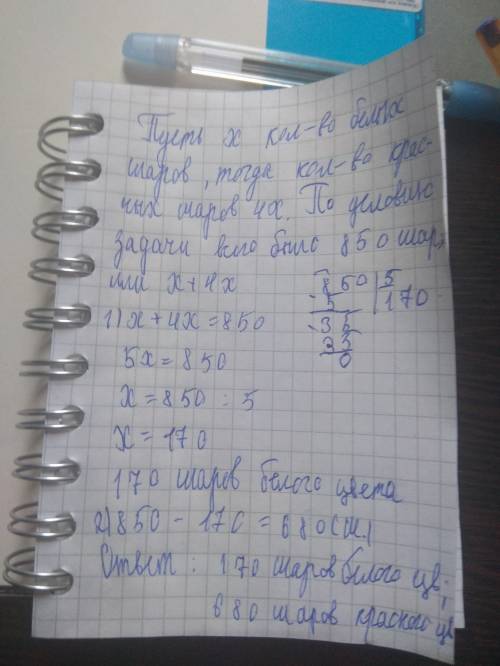 Пусть х кол-во белых
шаров, тогда кол-во крас-
ных шаров 4х. По условию
задачи всего было 850 шар,
или х+4х
1) х+4х=850
5х=850
х=850:5
х=170
850 5
5 170
35
35
0
170 шаров белого цвета
2) 850-170=680(ш)
Ответ: 170 шаров белого цв;
680 шаров красного цв